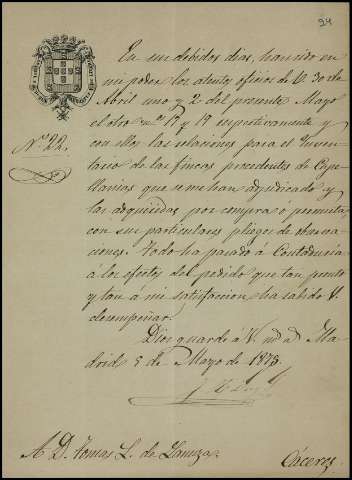 24
En sus debidos dias, han sido en
mi poder los atentos oficios de V. 30 de
Abril uno y 2 del presente Mayo
el otro nos 17 y 19 respectivamente y
con ellos las relaciones para el Inven-
tario de las fincas procedentes de Cape-
Nº 22.
llanias que se me han adjudicado y
las adquiridas por compra ó permuta
con sus particulares pliegos de observa-
ciones. Todo ha pasado á Contaduria
á los efectos del pedido que tan pronto
y tan á mi satisfaccion ha sabido V.
desempeñar.
Dios guarde á V. ms as Ma-
drid 5 de Mayo de 1878.
A D. Tomas L. de
Cáceres